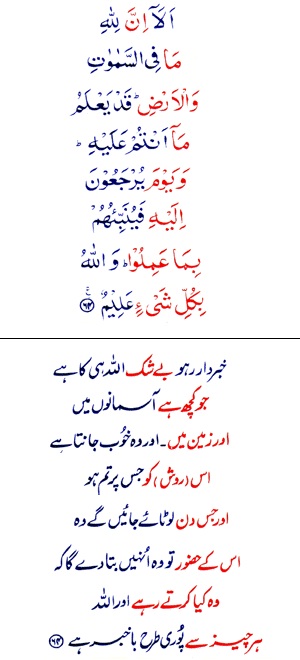 اَلَاۤ اِنَّ لِلّٰهِ
مَا فِی السَّمٰوٰتِ
وَالْاَرْضِ ؕ قَدْ یَعْلَمُ
مَاۤ اَنْتُمْ عَلَیْهِ ؕ
وَیَوْمَ یُرْجَعُوْنَ
اِلَیْهِ فَیُنَبِّئُهُمْ
بِمَا عَمِلُوْا ؕ وَاللّٰهُ
بِكُلِّ شَیْءٍ عَلِیْمٌ ﴿۶۴﴾
خبردار رہو بے شک اللہ ہی کا ہے
جو کچھ ہے آسمانوں میں
اور زمین میں۔ اور وہ خُوب جانتا ہے
اس (روش) کو جس پر تم ہو
اور جس دن لوٹائے جائیں گے وہ
اس کے حضور تو وہ اُنہیں بتا دے گا کہ
وہ کیا کرتے رہے اور اللہ
ہر چیز سے پُوری طرح باخبر ہے ﴿۶۴﴾